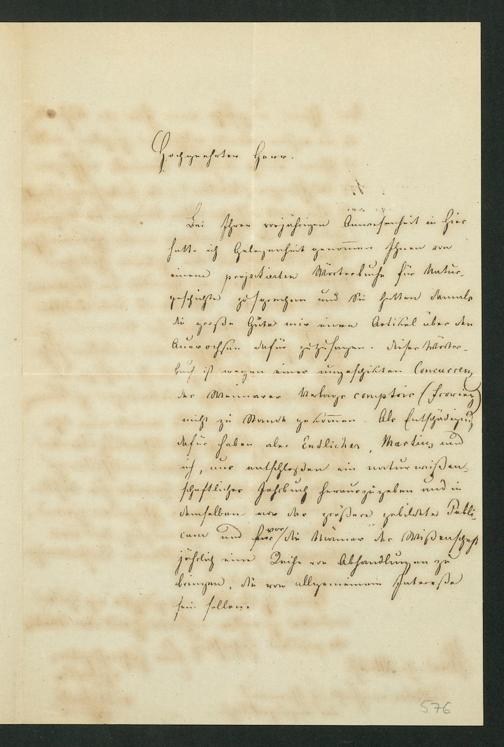 Hochgeehrter Herr.
Bei Ihrer vorjährigen Anwesenheit in hier
hatte ich Gelegenheit genommen Ihnen von
einem projektirten Wörterbuche für Natur-
geschichte zu sprechen und Sie hatten damals
die große Güte mir einen Artikel über den
Auerochsen dafür zuzusagen. Dieses Wörter-
buch ist wegen einer ungeschikten Concurrenz
des Weimarer Verlags comptoir (Froriep)
nicht zu Stande gekommen. Als Entschädigung
dafür haben aber Endlicher, Martius und
ich, uns entschloßen ein naturwißen-
schaftliches Jahrbuch herauszugeben und in
demselben vor das größere gebildete Publi-
cum und vor die Männer der Wißenschaft
jährlich eine Reihe von Abhandlungen zu
bringen, die von allgemeinem Interesse
sein sollen.
576